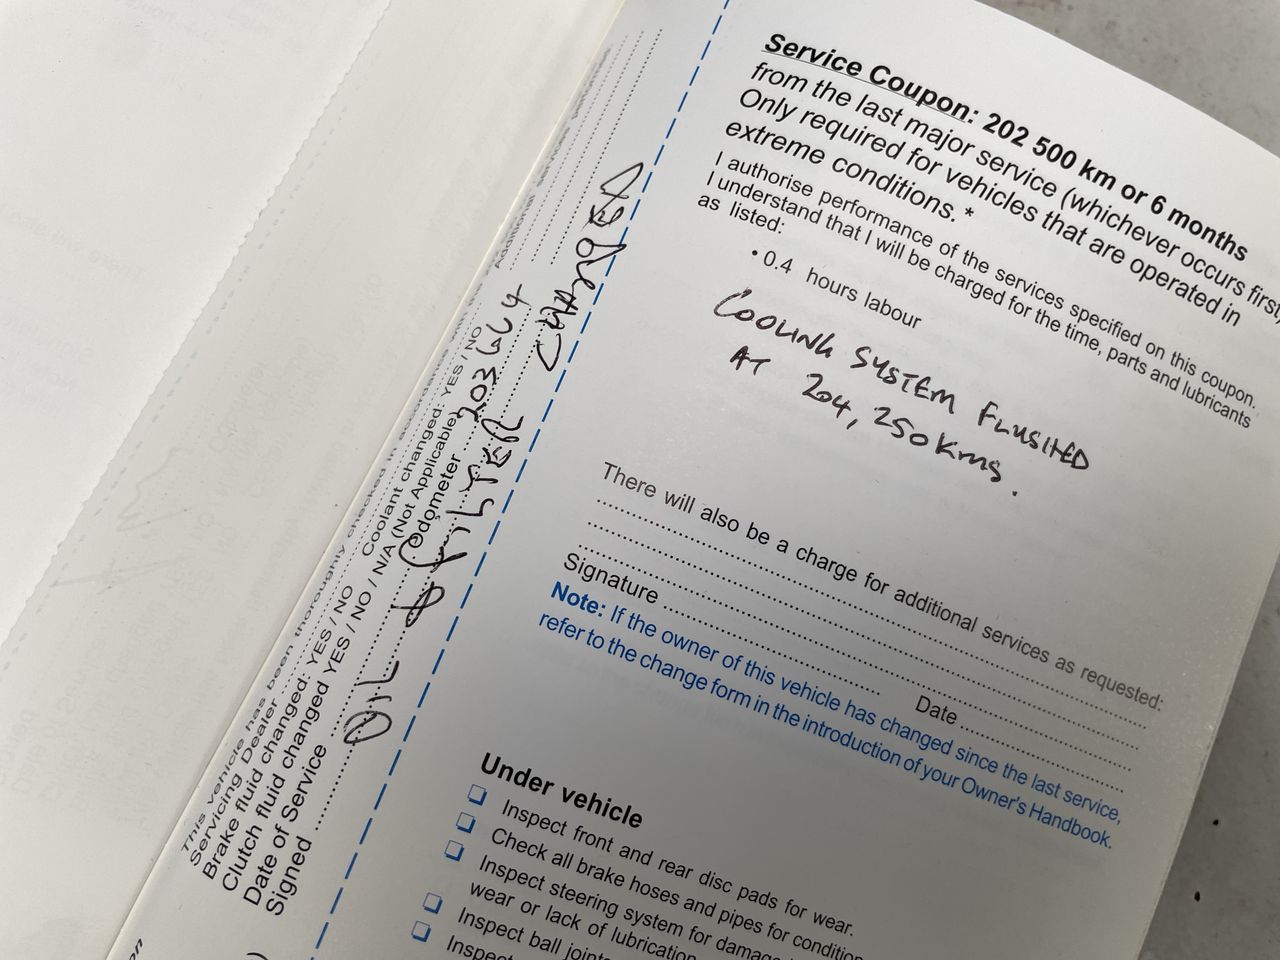 Service Coupon: 202 500 km or 6 months
from the last major service (whichever occurs first
Only required for vehicles that are operated in
extreme conditions. *
I authorise performance of the services specified on this coupon.
I understand that I will be charged for the time, parts and lubricants
as listed:
• 0.4 hours labour
COOLING SYSTEM FLUSHED
AT 204,250Kms.
There will also be a charge for additional services as requested:
Signature
Date
Note: If the owner of this vehicle has changed since the last service,
refer to the change form in the introduction of your Owner's Handbook.
Under vehicle
❑ Inspect front and rear disc pads for wear.
❑ Check all brake hoses and pipes for condition
❑ Inspect steering system for damage
wear or lack of lubrication
❑ Inspect ball joint
❑ Inspect
This vehicle has been thoroughly checked in accordance
Servicing Dealer
Brake fluid changed: YES / NO Coolant changed: YES / NO
Clutch fluid changed YES / NO / N/A (Not Applicable)
Date of Service Odometer 203664
Signed
OIL & FILTER CHANGED
Additional